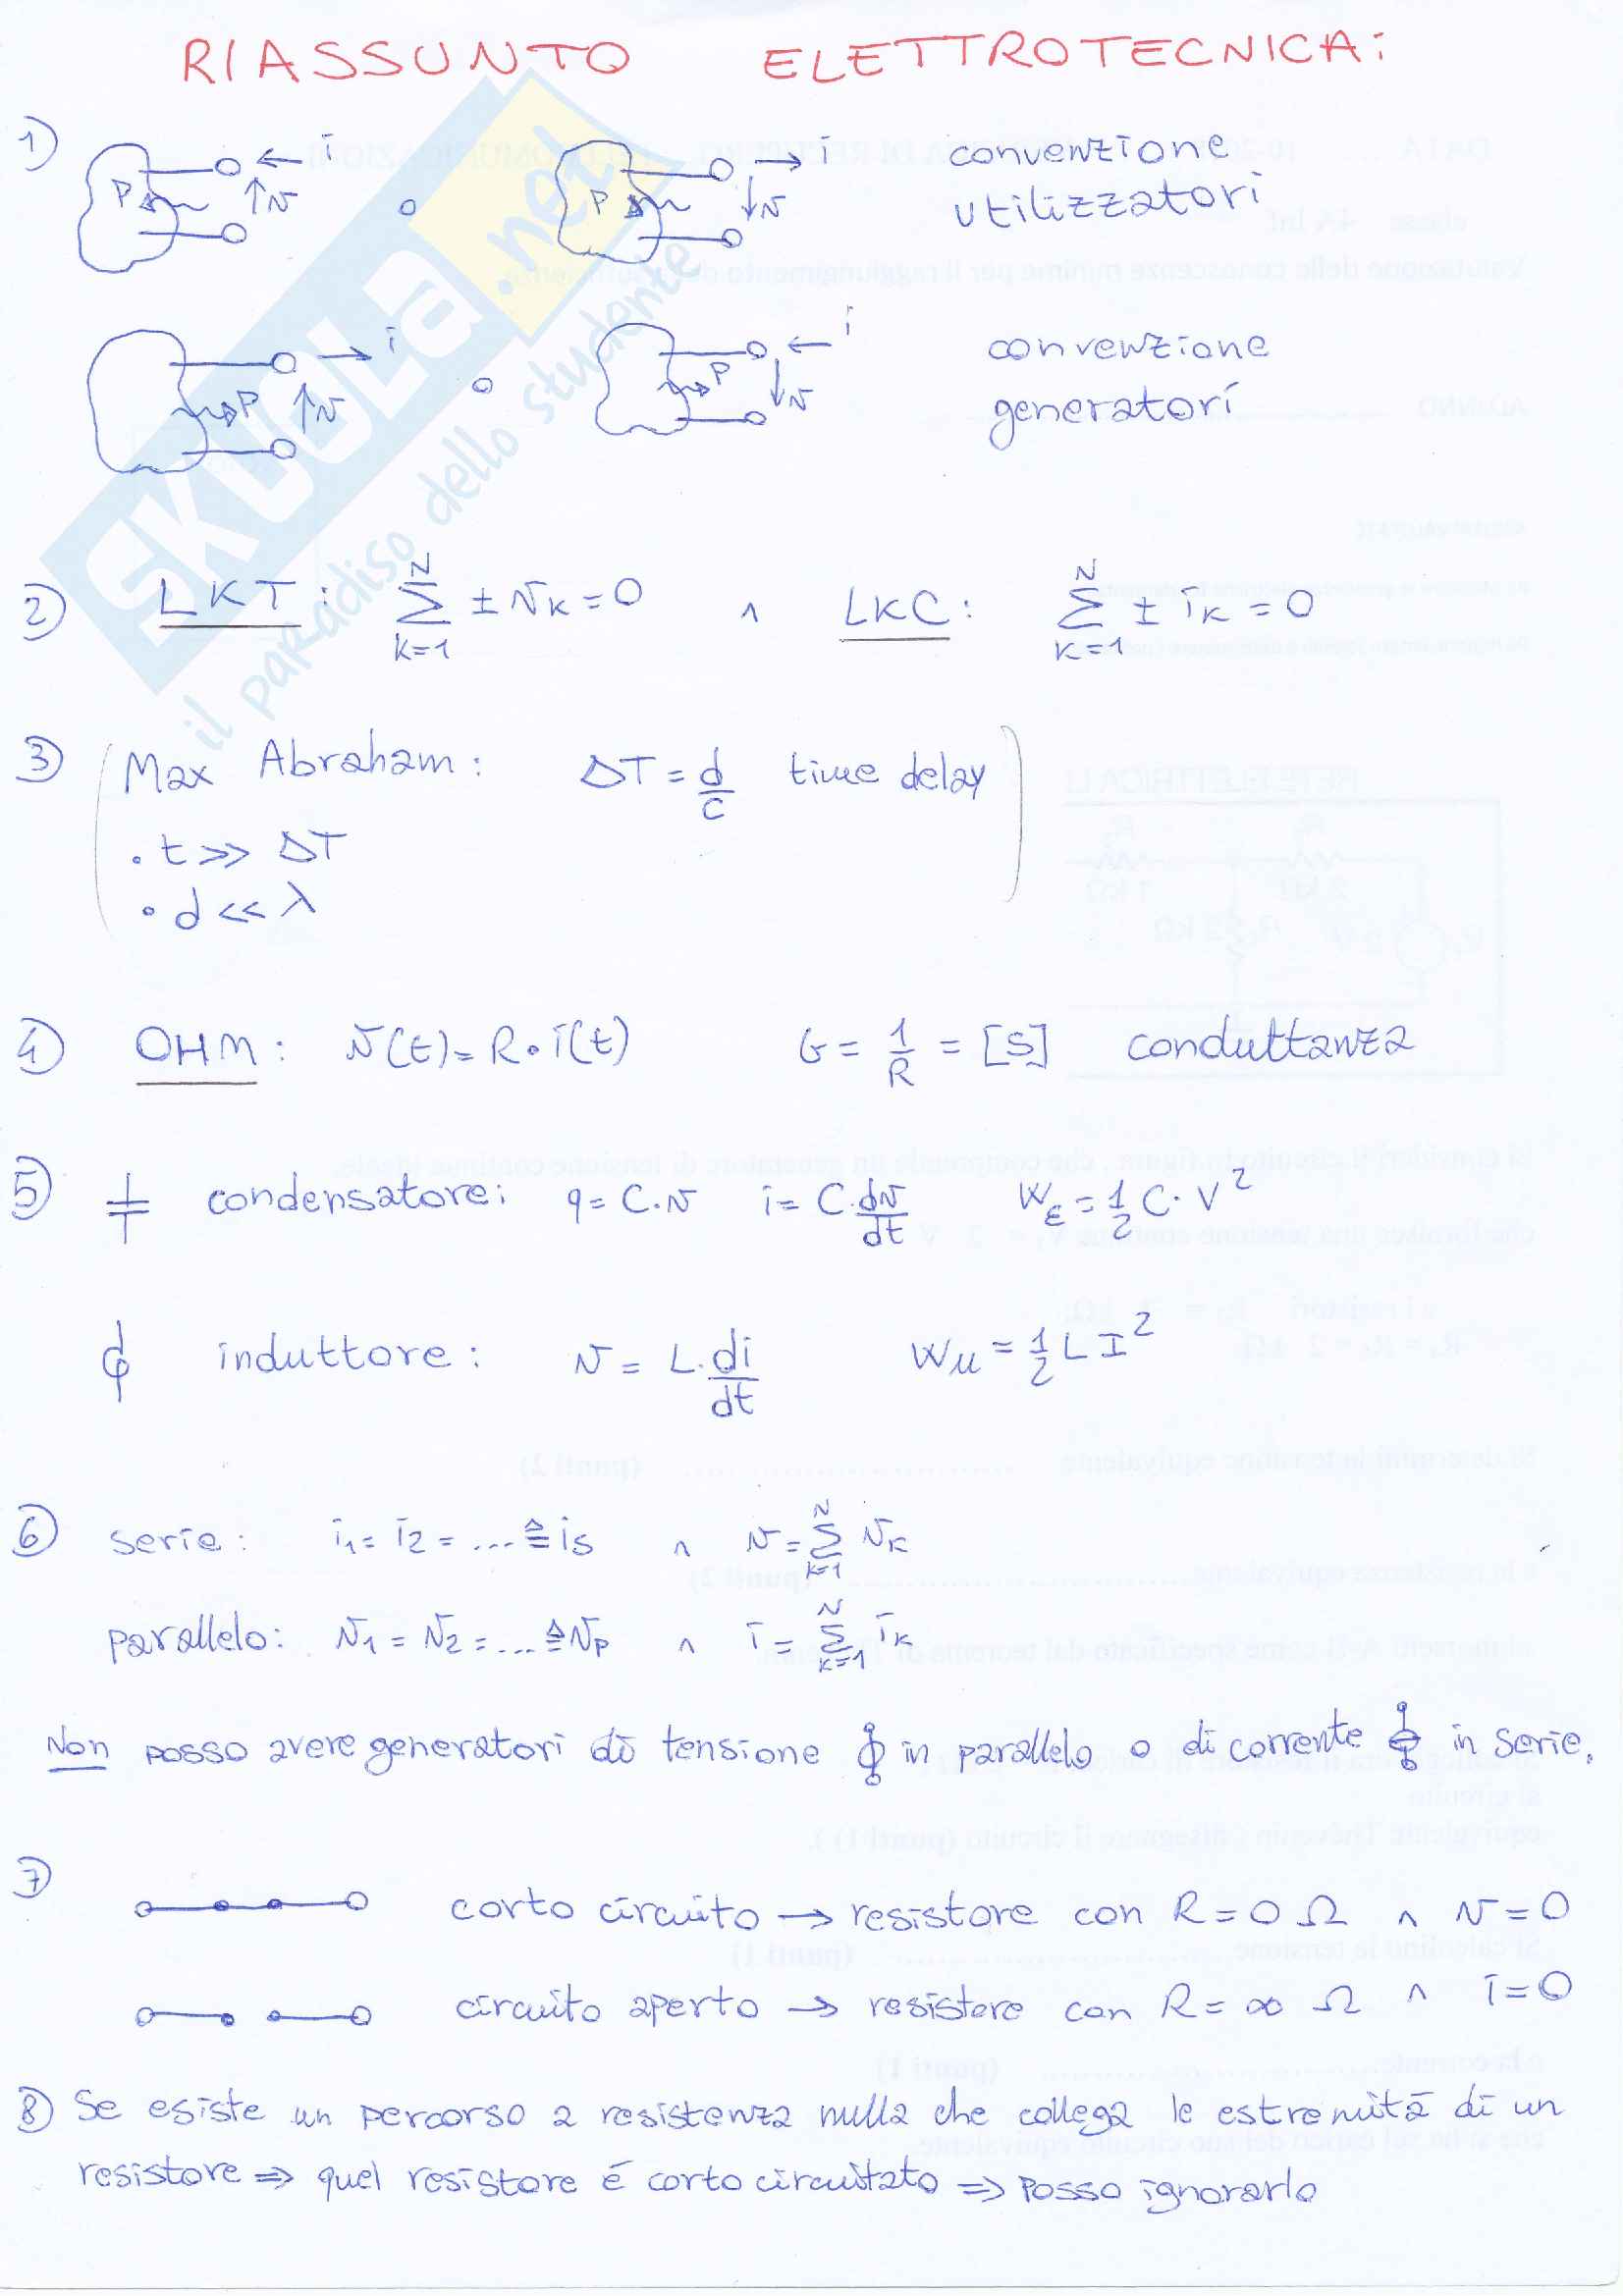 RIASSUNTO ELETTROTECNICA:
1) P i v o P i v convenzione
utilizzatori
P i v o P i v convenzione
generatori
SKUOLA.net
il paradiso dello studente
2) LKT: N ∑ k=1 ± vk = 0 ∧ LKC: N ∑ k=1 ± ik = 0
3) Max Abraham: ΔT = d/c time delay
• t >> ΔT
• d << λ
4) OHM: v(t) = R•i(t) G = 1/R = [S] conduttanza
5) condensatore: q = C·v i = C·dv/dt Wε = 1/2 C·V²
induttore: v = L·di/dt Wμ = 1/2 L I²
6) serie: i1 = i2 = ... ≜ is ∧ v = N ∑ k=1 vk
parallelo: v1 = v2 = ... ≜ vp ∧ i = N ∑ k=1 ik
Non posso avere generatori di tensione in parallelo o di corrente in serie.
7) corto circuito → resistore con R = 0 Ω ∧ v = 0
circuito aperto → resistore con R = ∞ Ω ∧ i = 0
8) Se esiste un percorso a resistenza nulla che collega le estremità di un
resistore ⇒ quel resistore é corto circuitato ⇒ posso ignorarlo